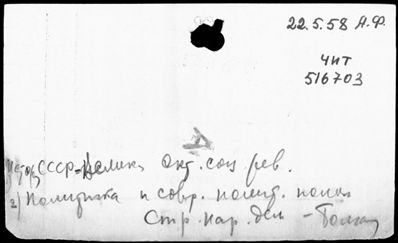 22.5.58 А.Ф.
чит
516703
СССР-Велик. окт. соц рев.
2) Политика и совр. полит. полож
Стр. нар. дем - Болга